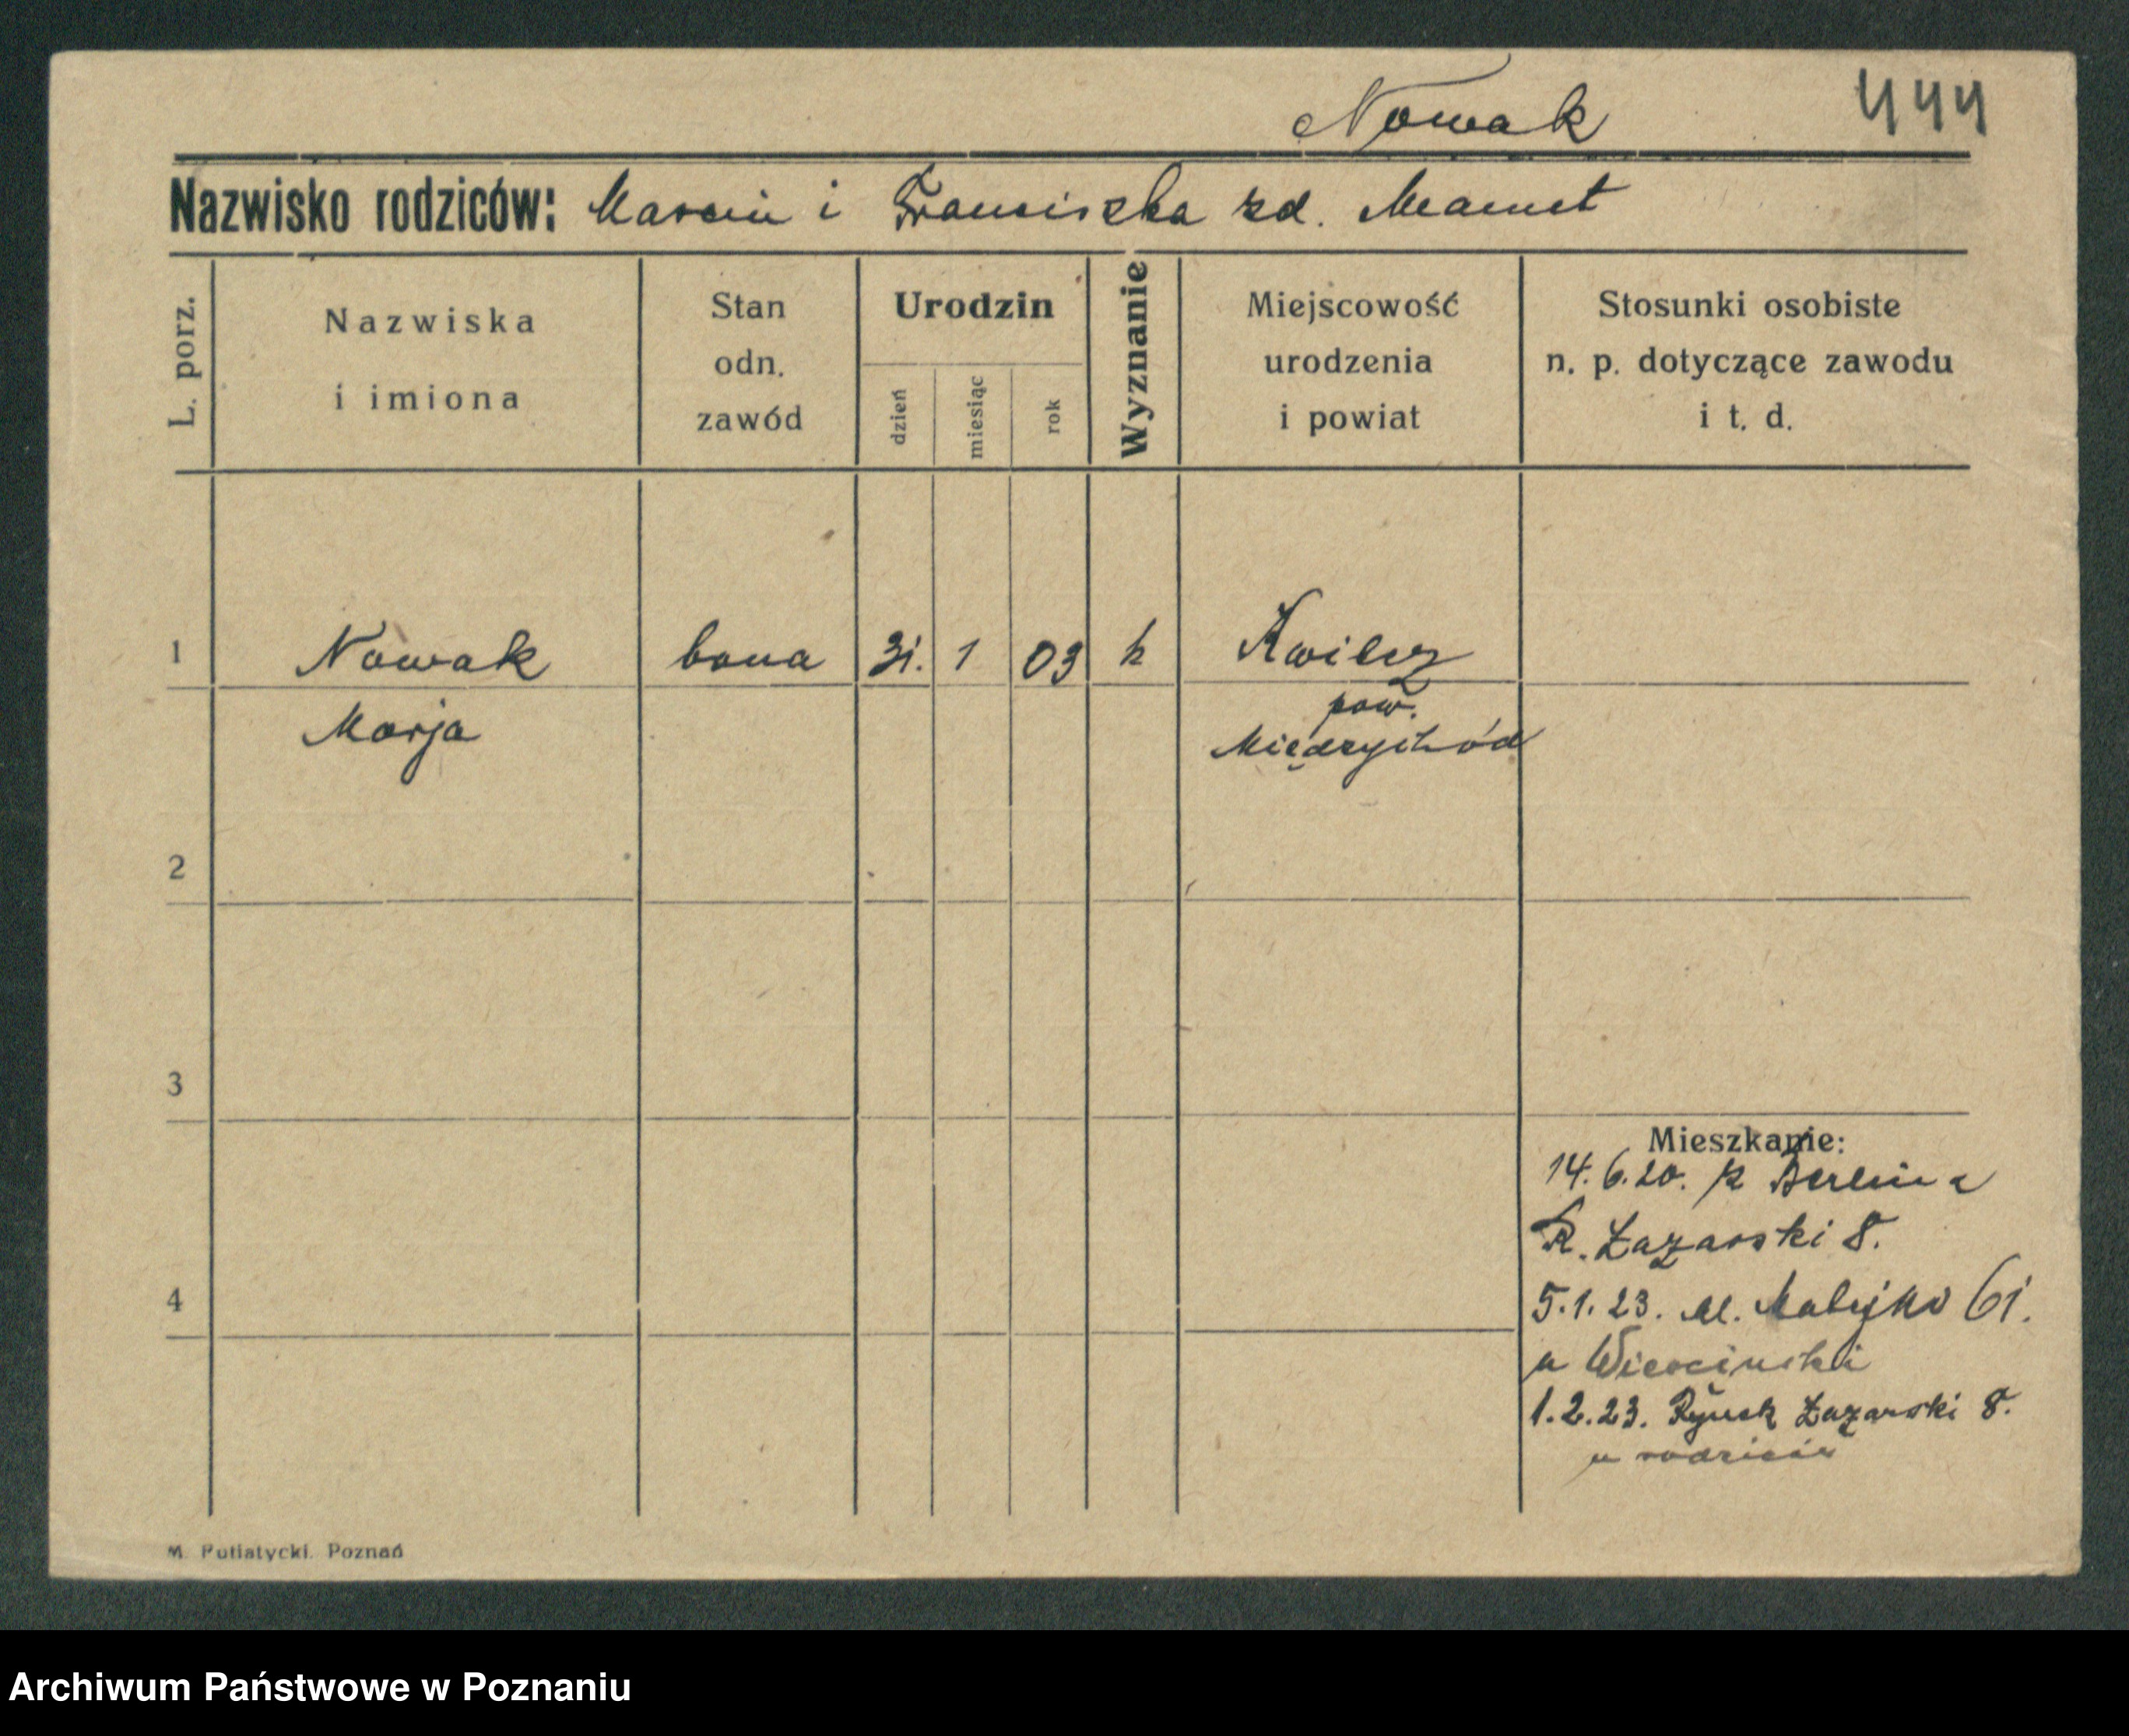 Nowak 444
Nazwisko rodziców: Marcin i Franciszka zd. Mamet
L. porz.
Nazwiska
i imiona
Stan
odn.
zawód
Urodzin
dzień
miesiąc
rok
Wyznanie
Miejscowość
urodzenia
i powiat
Stosunki osobiste
n. p. dotyczące zawodu
i t. d.
1 Nowak bona 31. 1 03 k Kwilcz
pow.
Marja Międzychód
2
3
Mieszkanie:
14.6.20. z Berlina
R. Łazarski 8.
4
5.1.23. Al. Matejko 61.
u
1.2.23. Rynek Łazarski 8.
u rodziców
M. Putiatycki. Poznań
Archiwum Państwowe w Poznaniu